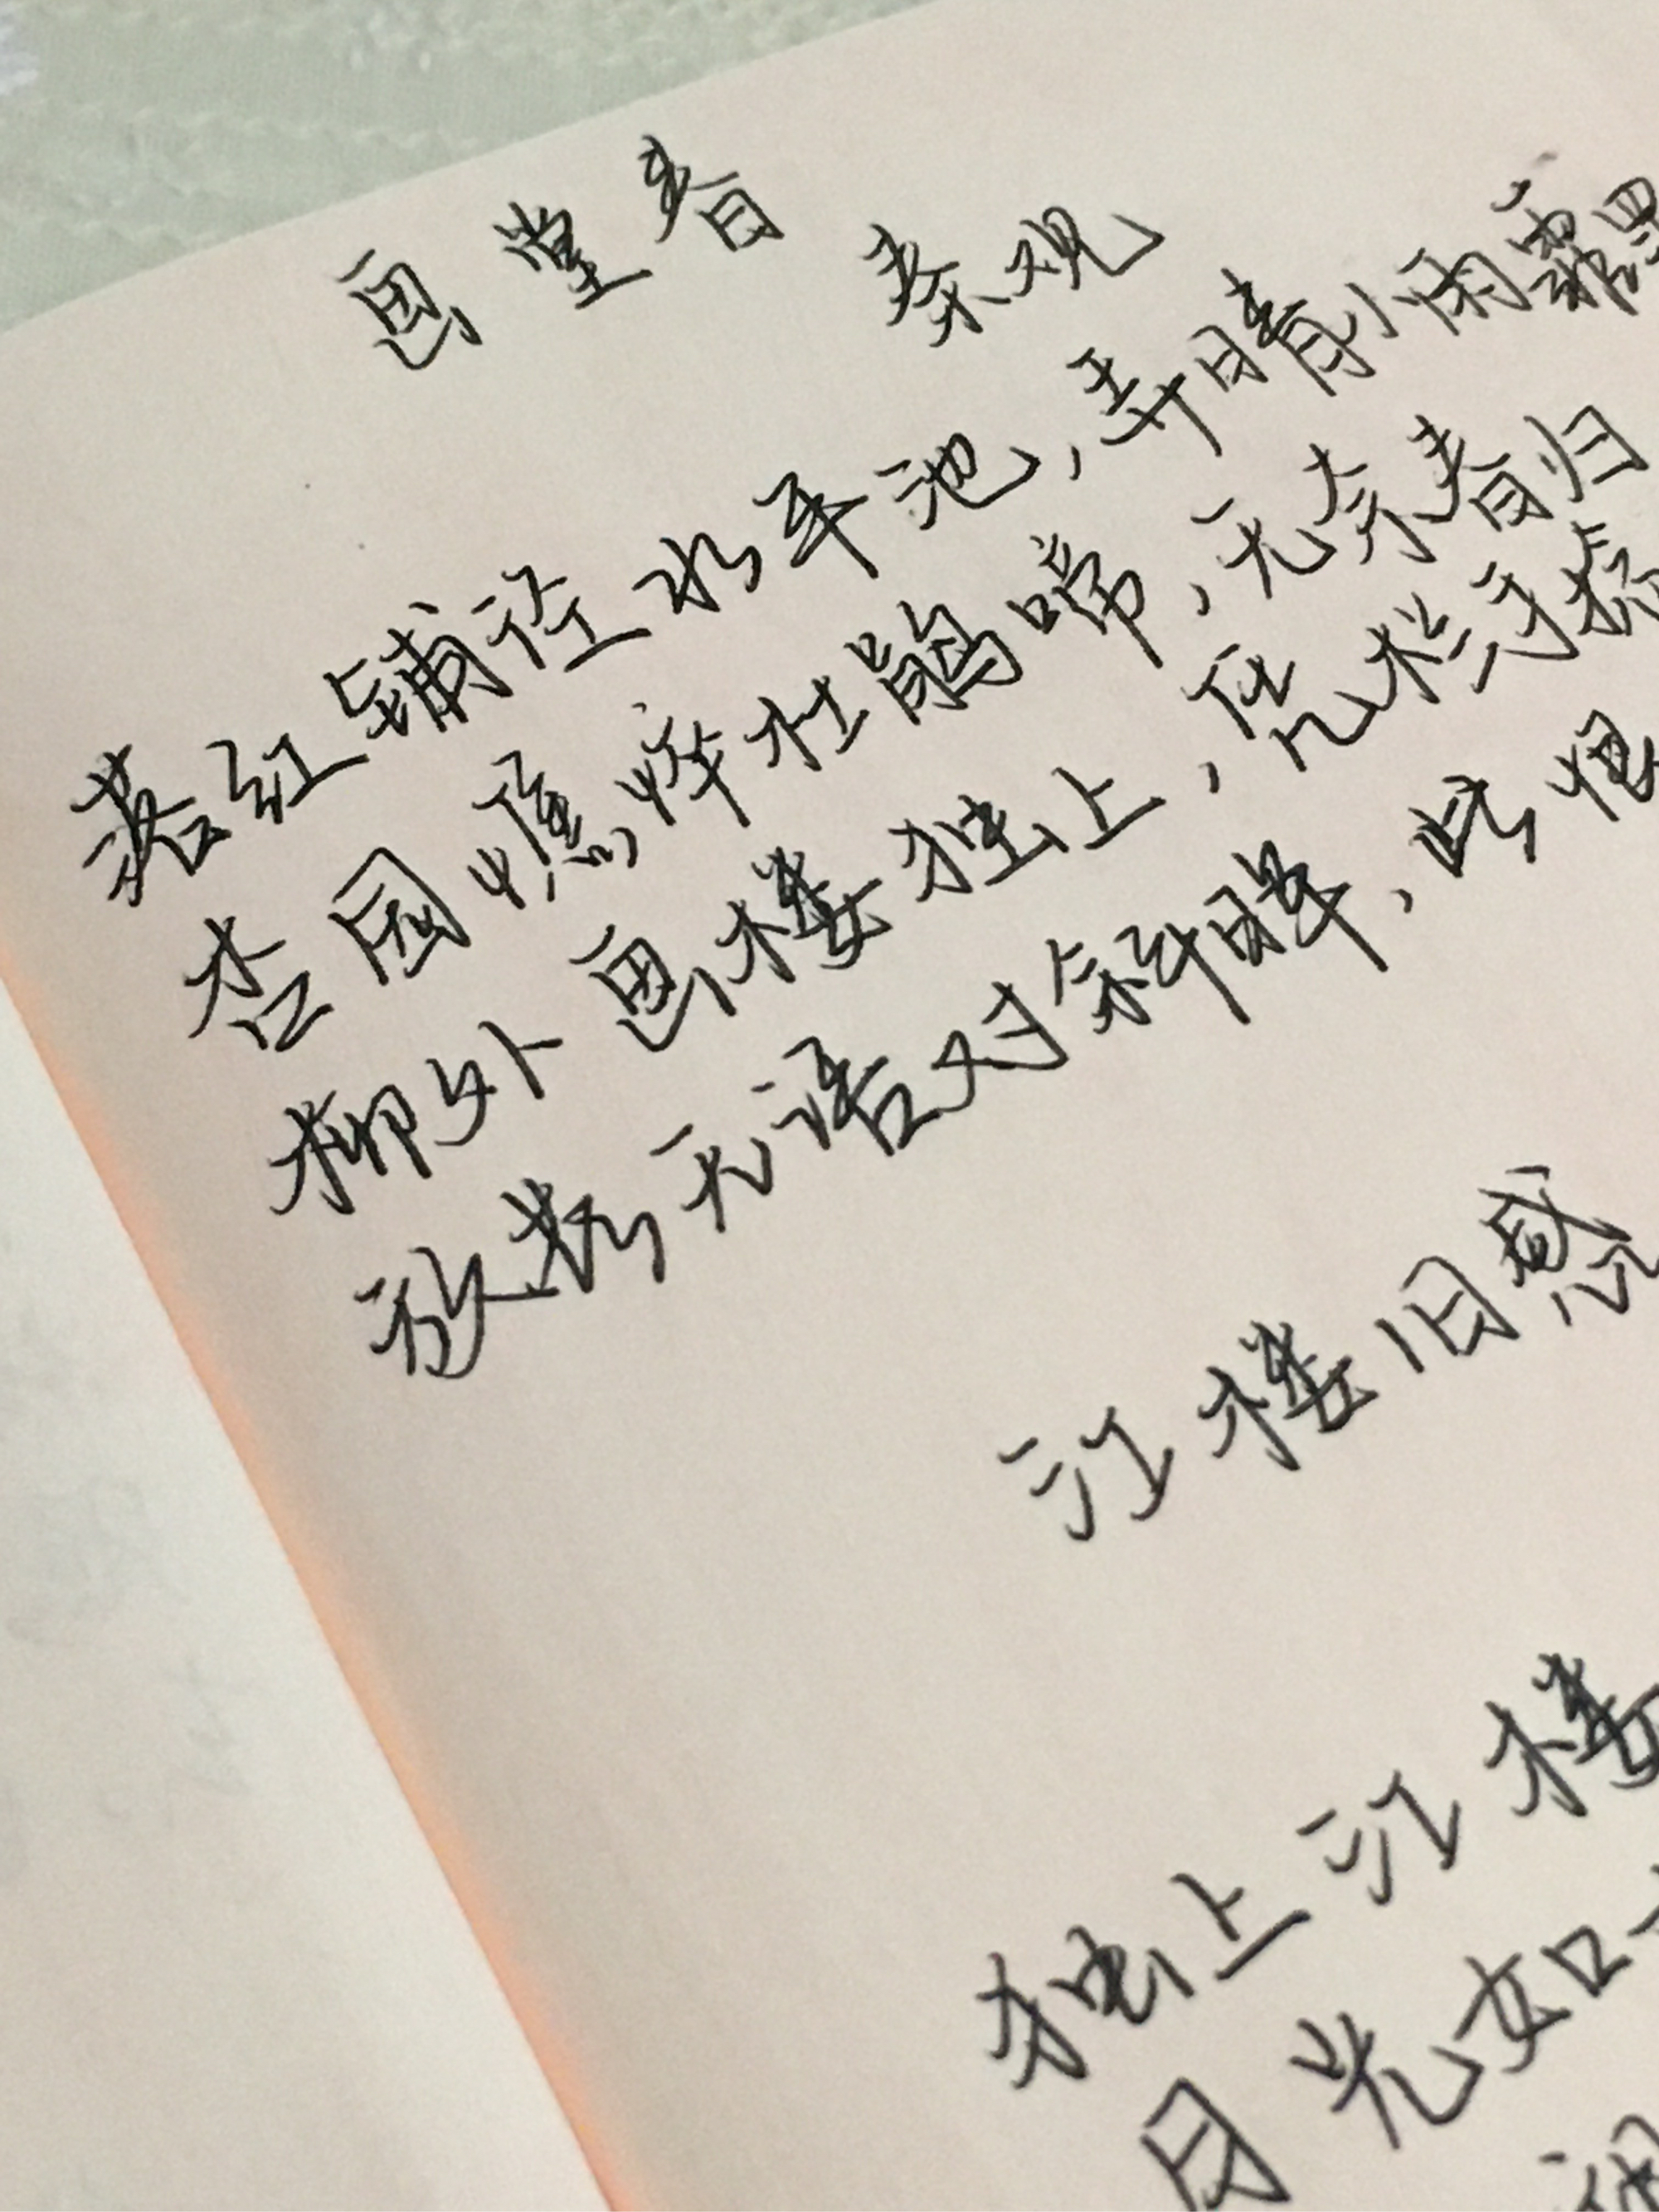 画堂春
秦观
落红铺径水平池，弄晴小雨霏
杏园憔悴杜鹃啼，无奈春归
柳外画楼独上，凭栏手捻
放花无语对斜晖，此恨
江楼旧感
独上江楼
月光如